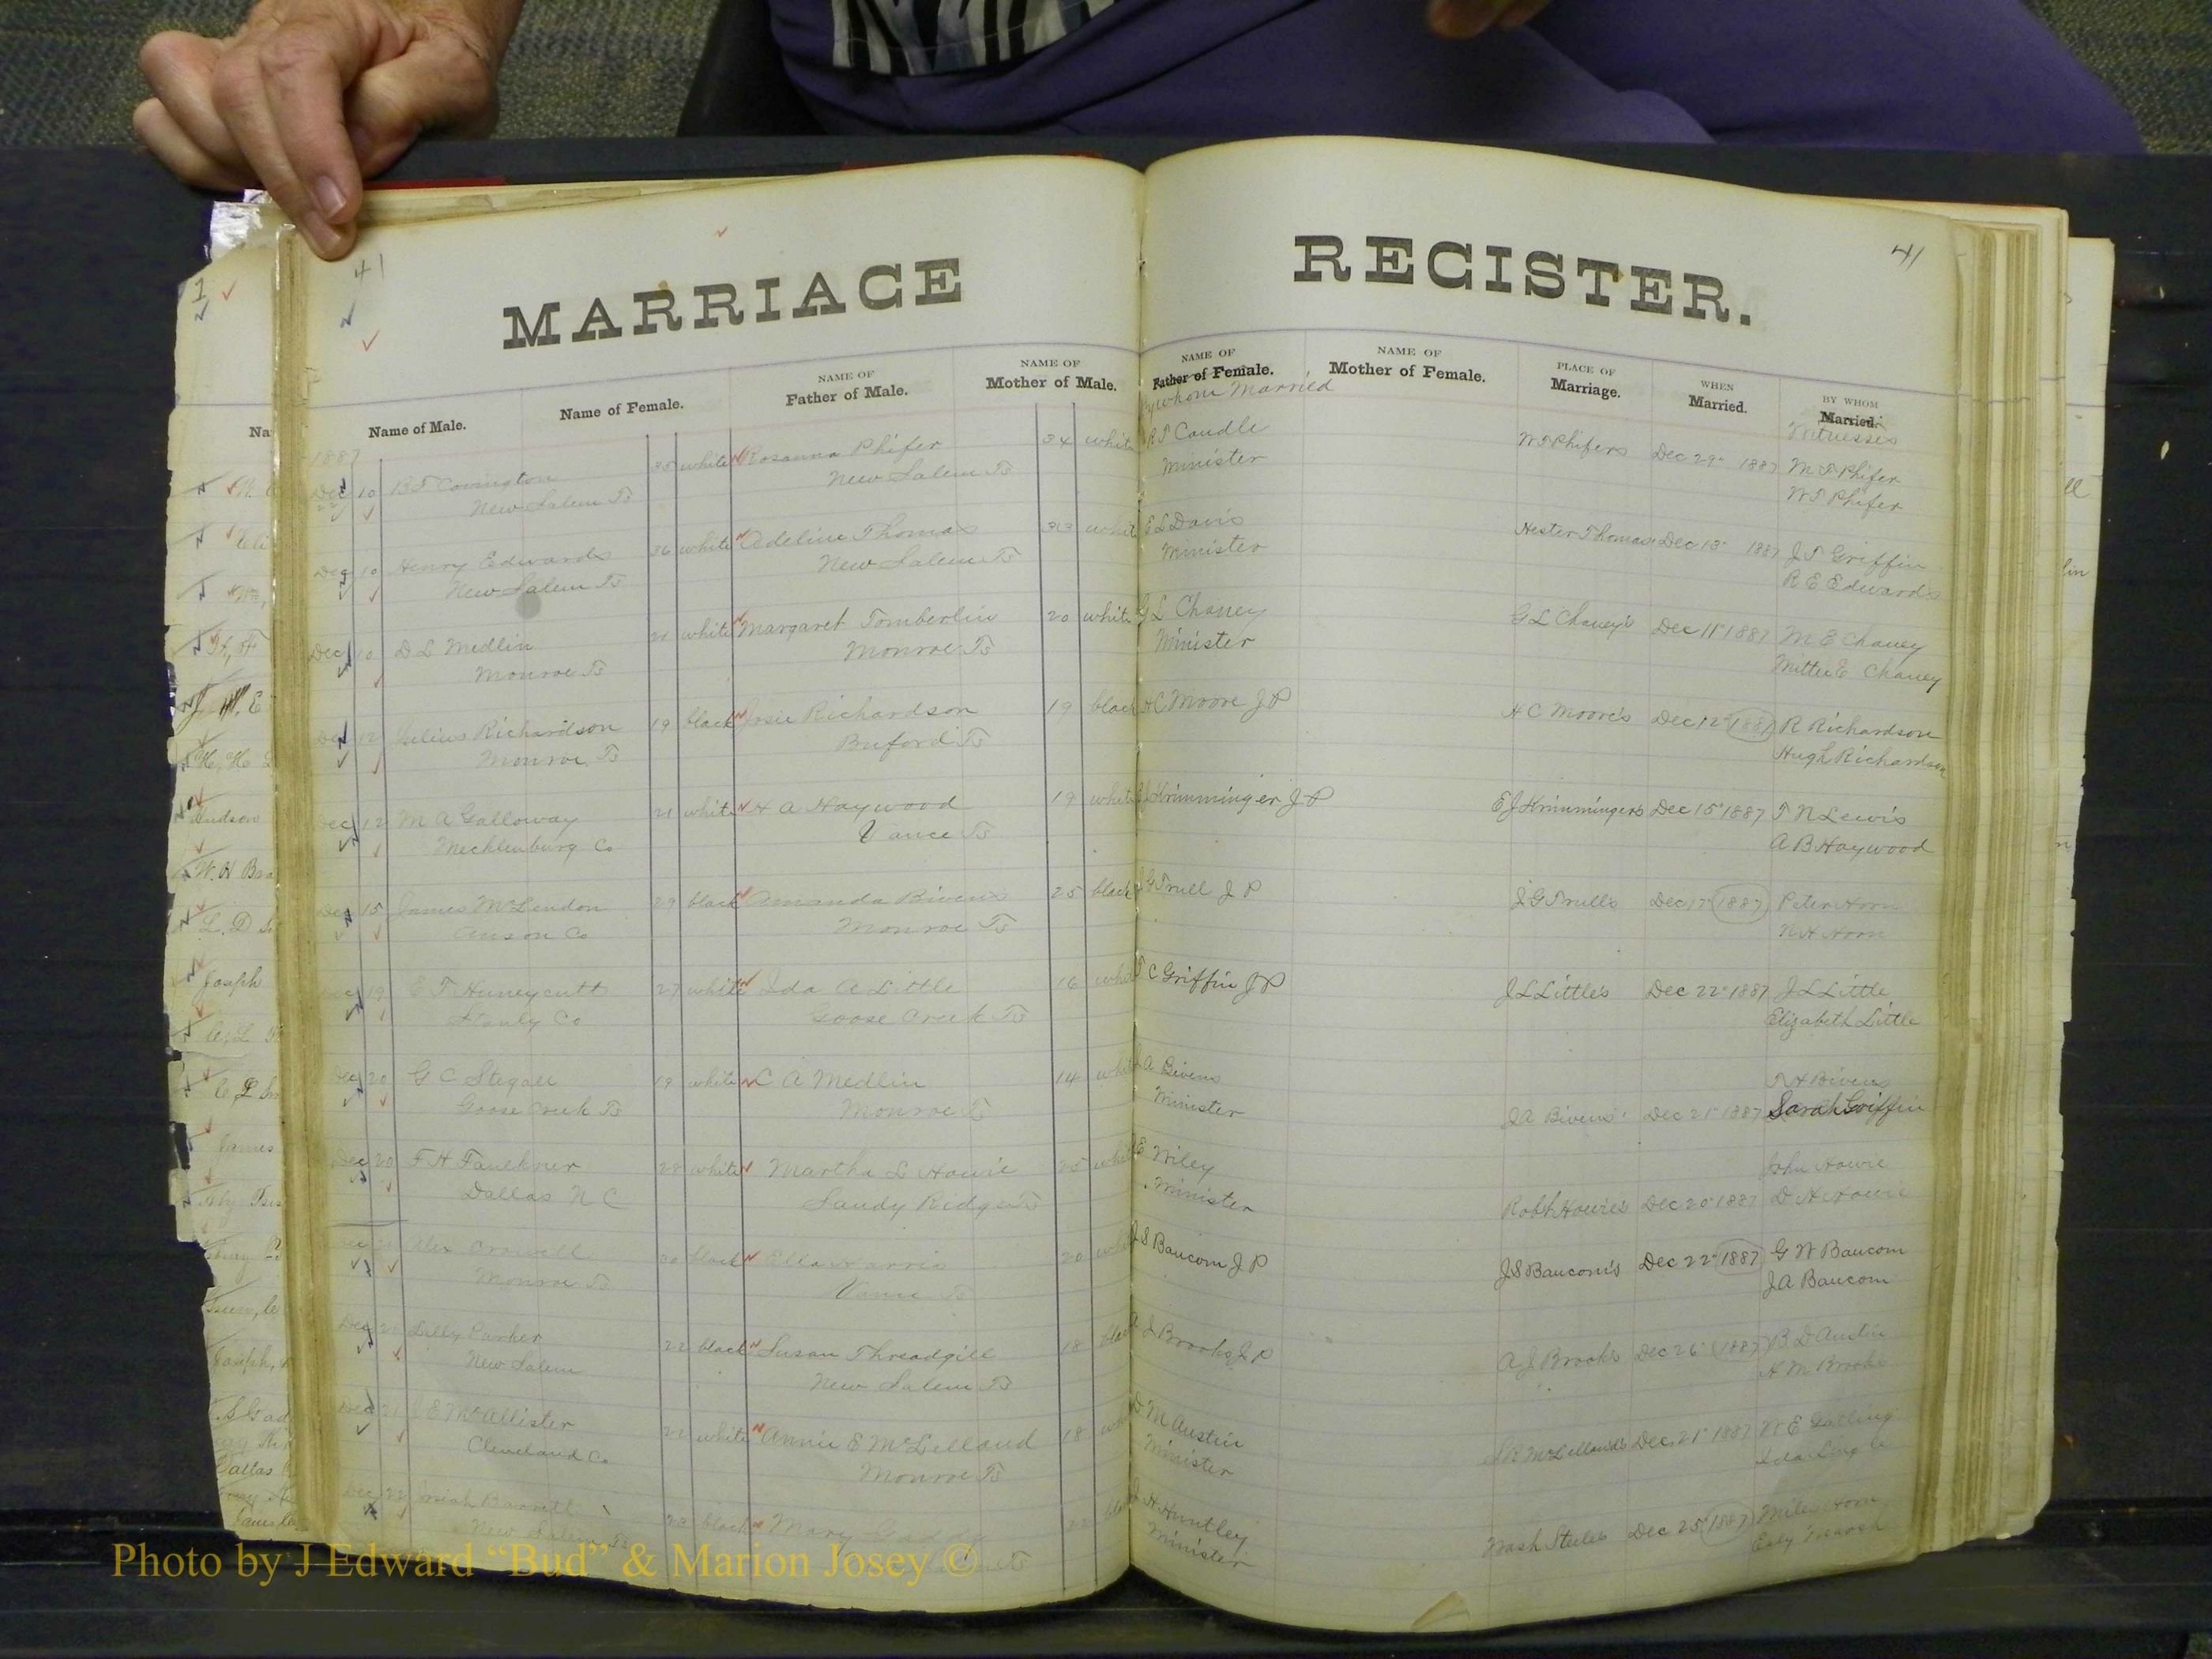 41
MARRIAGE
Name of Male.
Name of Female.
NAME OF
Father of Male.
NAME OF
Mother of Male.
1887
Dec 10 B T Covington 35 white Rosanna Phifer 34 white
New Salem Ts New Salem Ts
Dec 10 Henry Edwards 36 white Adeline Thomas 33 white
New Salem Ts New Salem Ts
Dec 10 D L Medlin 21 white Margaret Tomberlin 20 white
Monroe Ts Monroe Ts
Dec 12 Julius Richardson 19 black Josie Richardson 19 black
Monroe Ts Buford Ts
Dec 12 M A Galloway 21 white A Haywood 19 white
Mecklenburg Co Vance Ts
Dec 15 James McLendon 29 black Amanda Bivens 25 black
Anson Co Monroe Ts
Dec 19 E T Huneycutt 27 white Ida A Little 16 white
Stanly Co Goose Creek Ts
Dec 20 G C Stegall 19 white C A Medlin 14 white
Goose Creek Ts Monroe Ts
Dec 20 F H Faulkner 28 white Martha L Howie 25 white
Dallas N C Sandy Ridge Ts
Dec 21 Alex Crowell black Ella Harris 20
Monroe Ts Vance Ts
Dec 21 Lilly Parker 22 black Susan Threadgill 18 black
New Salem New Salem Ts
Dec 21 E McAllister 22 white Annie E McLelland 18
Cleveland Co Monroe Ts
Dec 22 Josiah Barrett 23 black Mary Gaddy 22
New Salem Ts Ts
REGISTER.
41
NAME OF
Father of Female.
By whom Married
NAME OF
Mother of Female.
PLACE OF
Marriage.
WHEN
Married.
BY WHOM
Married.
Witnesses
R T Caudle W T Phifers Dec 29" 1887 M T Phifer
Minister W T Phifer
E L Davis Hester Thomas Dec 13" 1887 J T Griffin
Minister R E Edwards
G L Chaney G L Chaney's Dec 11" 1887 M E Chaney
Minister Mittie E Chaney
H C Moore J P H C Moore's Dec 12" 1887 R Richardson
Hugh Richardson
E J Krimminger J P E J Krimmingers Dec 15" 1887 T N Lewis
A B Haywood
J G Trull J P J G Trulls Dec 17" 1887 Peter Horn
N H Horn
T C Griffin J P J L Little's Dec 22" 1887 J L Little
Elizabeth Little
J A Bivens T H Bivens
Minister J A Bivens' Dec 21" 1887 Sarah Griffin
E Wiley John Howie
Minister Robt Howie's Dec 20" 1887 D H Howie
J S Baucom J P J S Baucom's Dec 22" 1887 G W Baucom
J A Baucom
A J Brooks J P A J Brooks Dec 26" 1887 B D Austin
H M Brooks
D M Austin McLellands Dec 21" 1887 W E
Minister Ida Lingle
J H Huntley Wash Steeles Dec 25" 1887 Horn
Minister Marsh
Photo by J Edward “Bud” & Marion Josey ©